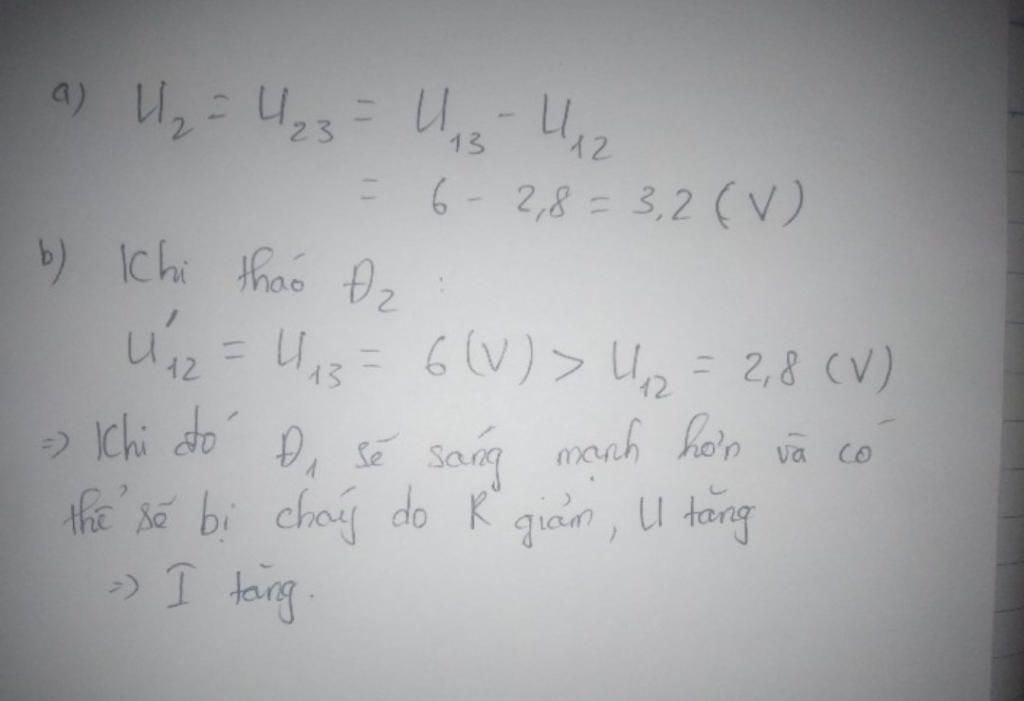 a) U₂ = U₂₃ = U₁₃ - U₁₂
= 6 - 2,8 = 3,2 (V)
b) Khi tháo Đ₂ :
U'₁₂ = U₁₃ = 6 (V) > U₁₂ = 2,8 (V)
=> Khi đó Đ₁ sẽ sáng mạnh hơn và có
thể sẽ bị cháy do R giảm, U tăng
=> I tăng.